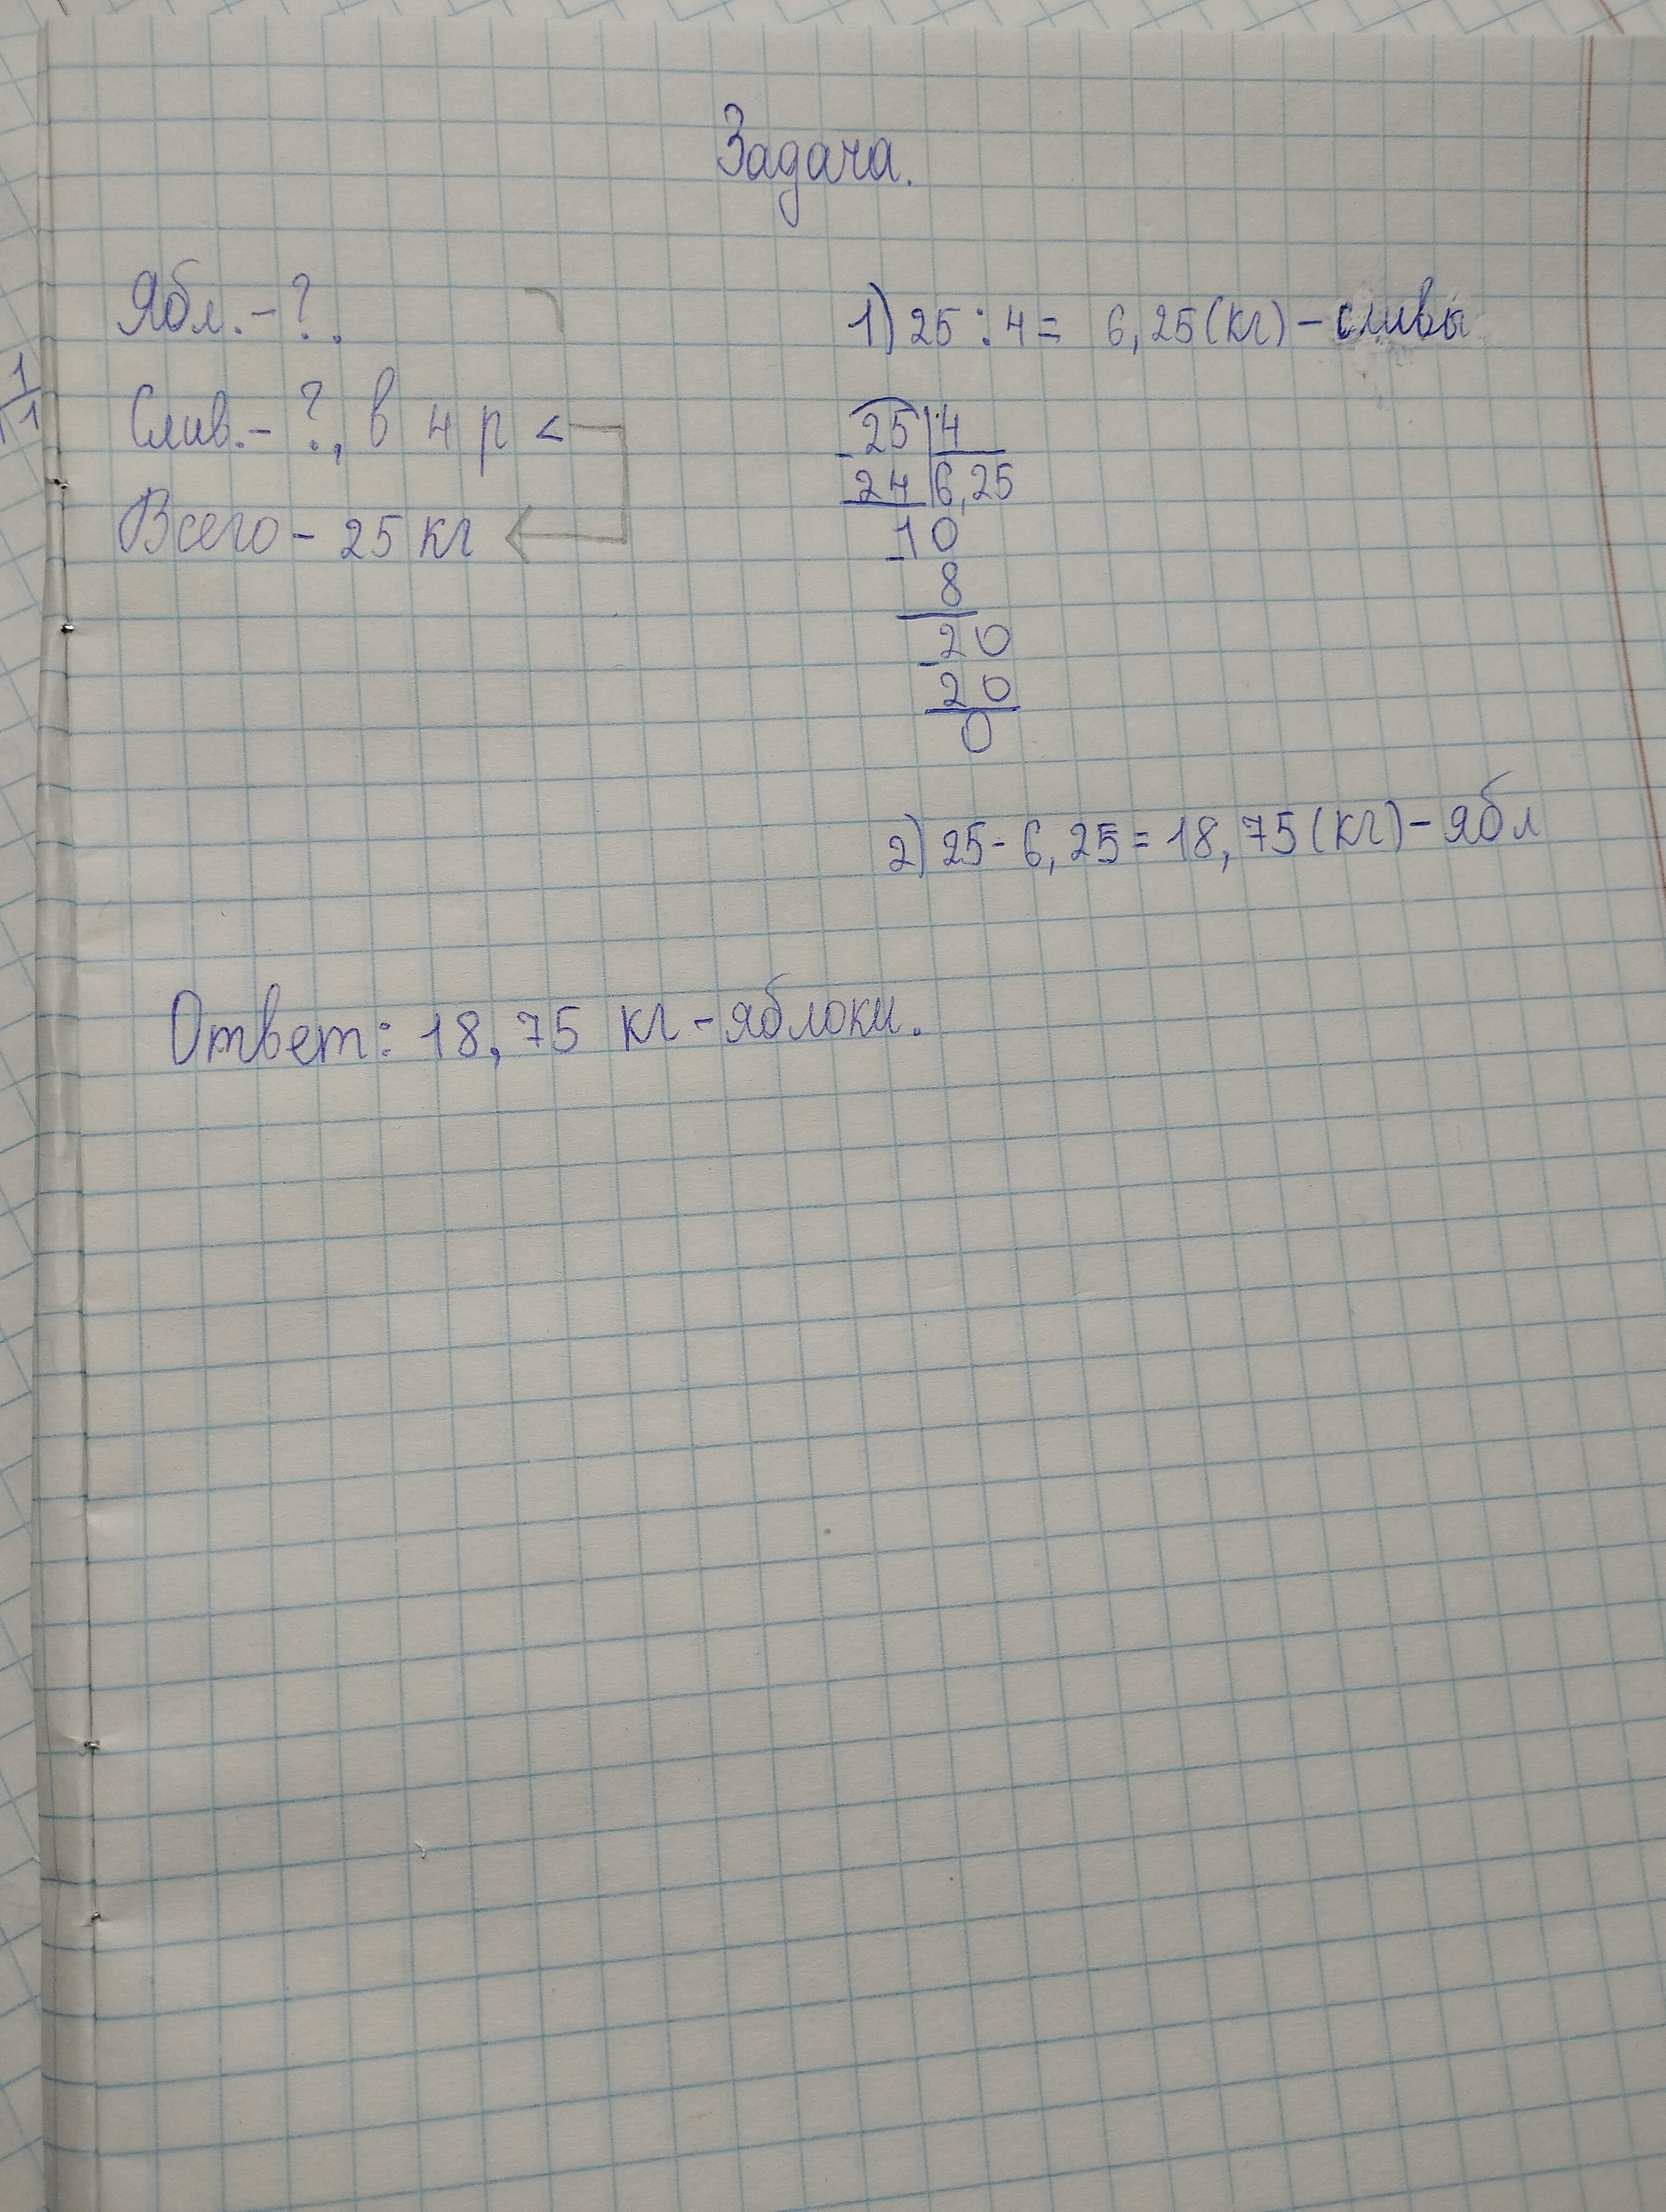 Задача.
Ябл. - ?.
Слив. - ?, в 4 р <
Всего - 25 кг
1) 25 : 4 = 6,25 (кг) - сливы
25 | 4
24 | 6,25
10
8
20
20
0
2) 25 - 6,25 = 18,75 (кг) - ябл
Ответ: 18,75 кг - яблоки.